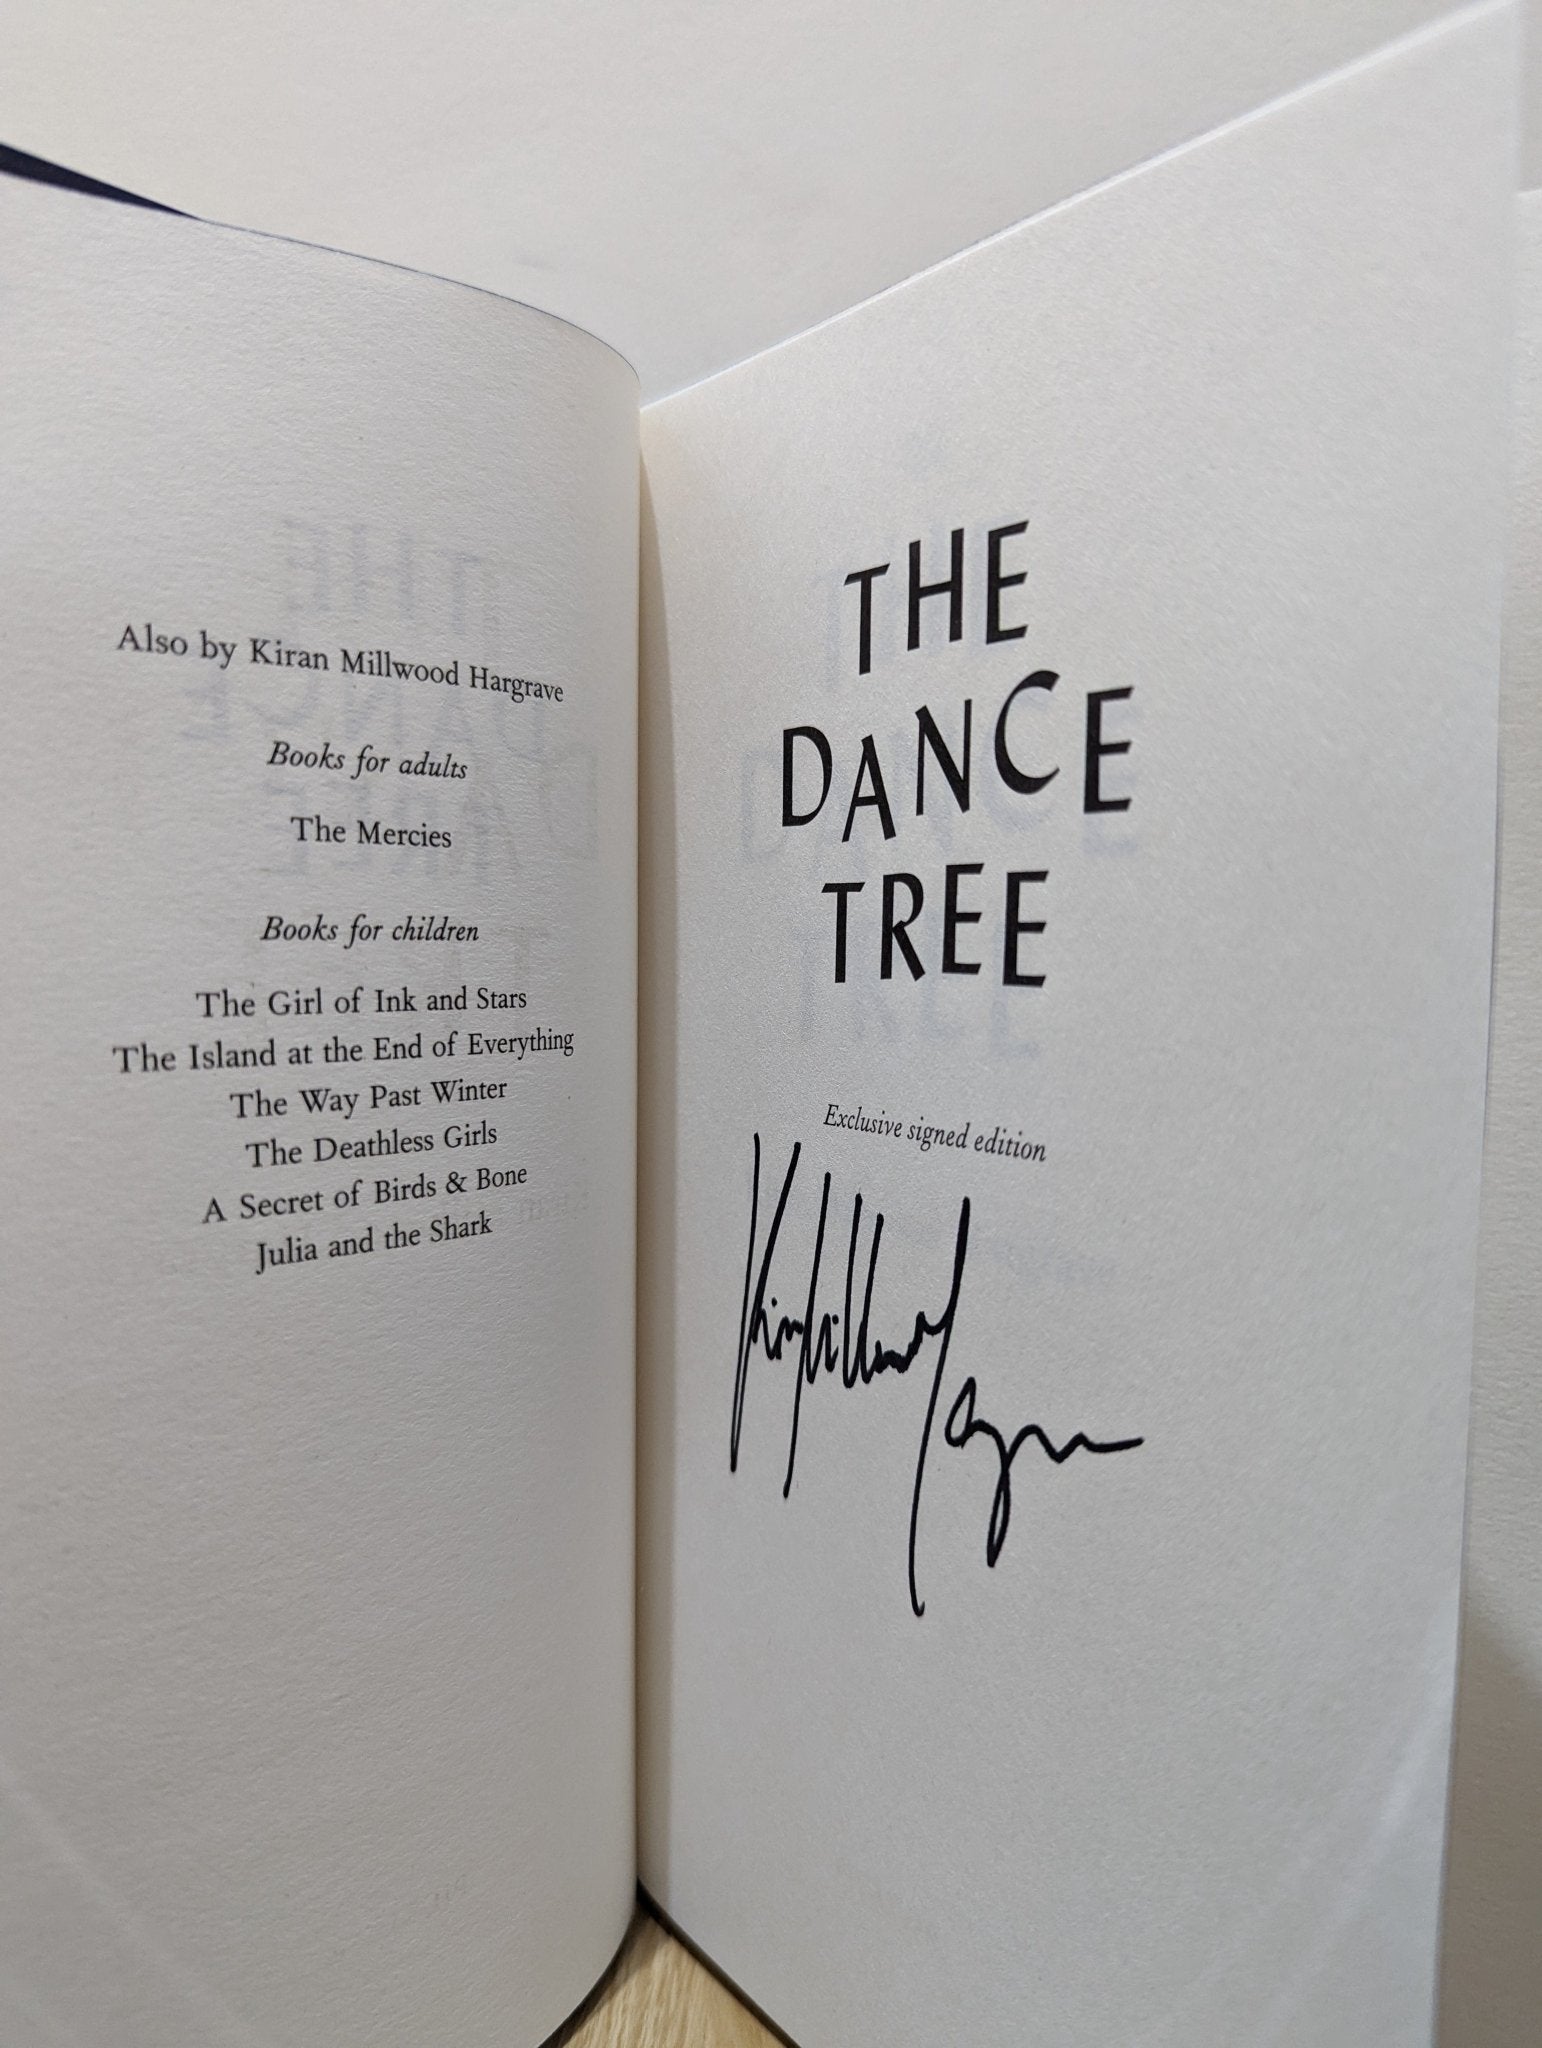 Also by Kiran Millwood Hargrave
Books for adults
The Mercies
Books for children
The Girl of Ink and Stars
The Island at the End of Everything
The Way Past Winter
The Deathless Girls
A Secret of Birds & Bone
Julia and the Shark
THE
DANCE
TREE
Exclusive signed edition
Kiran Millwood Hargrave